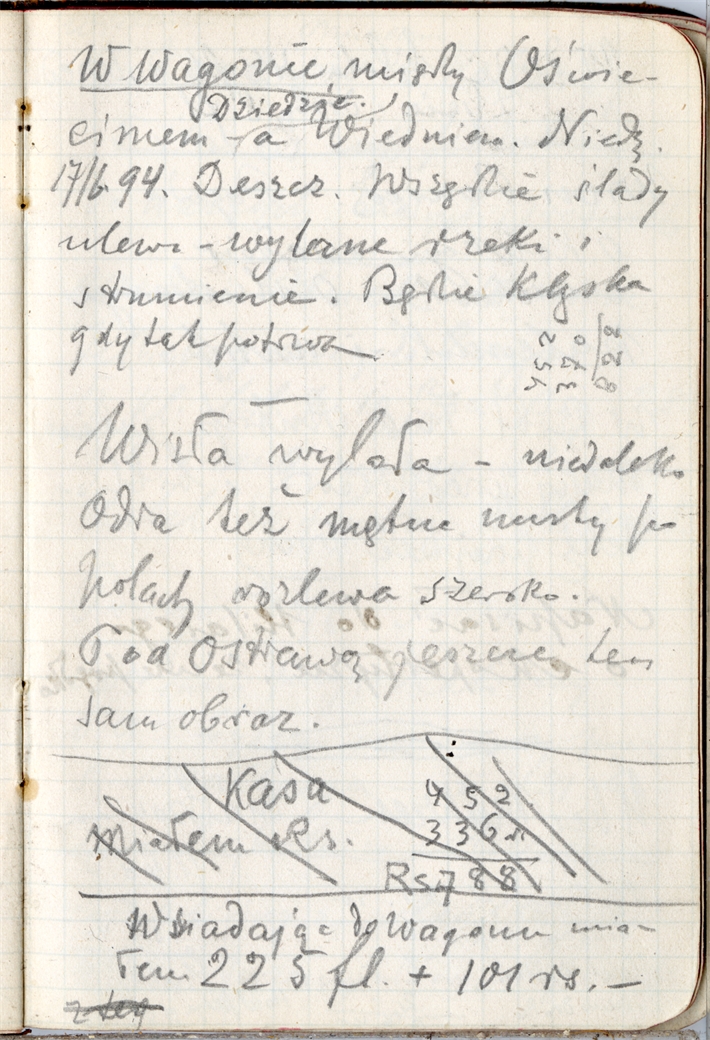 W Wagonie, między Oświe-
Dziedzic.
cimem - a Wiedniem. Niedz.
17/6 94. Deszcz. Wszędzie ślady
ulewy - wylane rzeki i
strumienie. Będzie klęska
gdy tak potrwa
452
370
822
Wisła wylała - niedaleko
Odra też mętne nurty po
polach rozlewa szeroko.
Pod Ostrawą jeszcze ten
sam obraz.
Kasa
452
miałem Rs.
336
Rs 788
Wsiadając do Wagonu mia-
łem 225 fl. + 101 rs. -
z tego